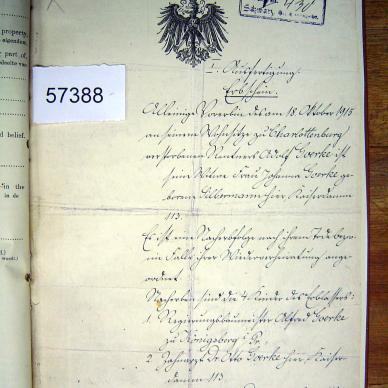 property
part of,
d belief.
in the
in de
430
57388
I. Ausfertigung.
Erbschein.
Alleinige Vorerbin des am 18. Oktober 1915
an seinem Wohnsitze zu Charlottenburg
verstorbenen Rentners Adolf Goerke ist
seine Witwe Frau Johanna Goerke ge-
borene Silbermann hier Kaiserdamm
113.
Es ist eine Nacherbfolge nach ihrem Tode bezw.
im Falle ihrer Wiederverheiratung ange-
ordnet.
Nacherben sind die 4 Kinder des Erblassers:
1. Regierungsbaumeister Alfred Goerke
zu Königsberg i. Pr.
2. Zahnarzt Dr Otto Goerke hier, Kaiser-
damm 113